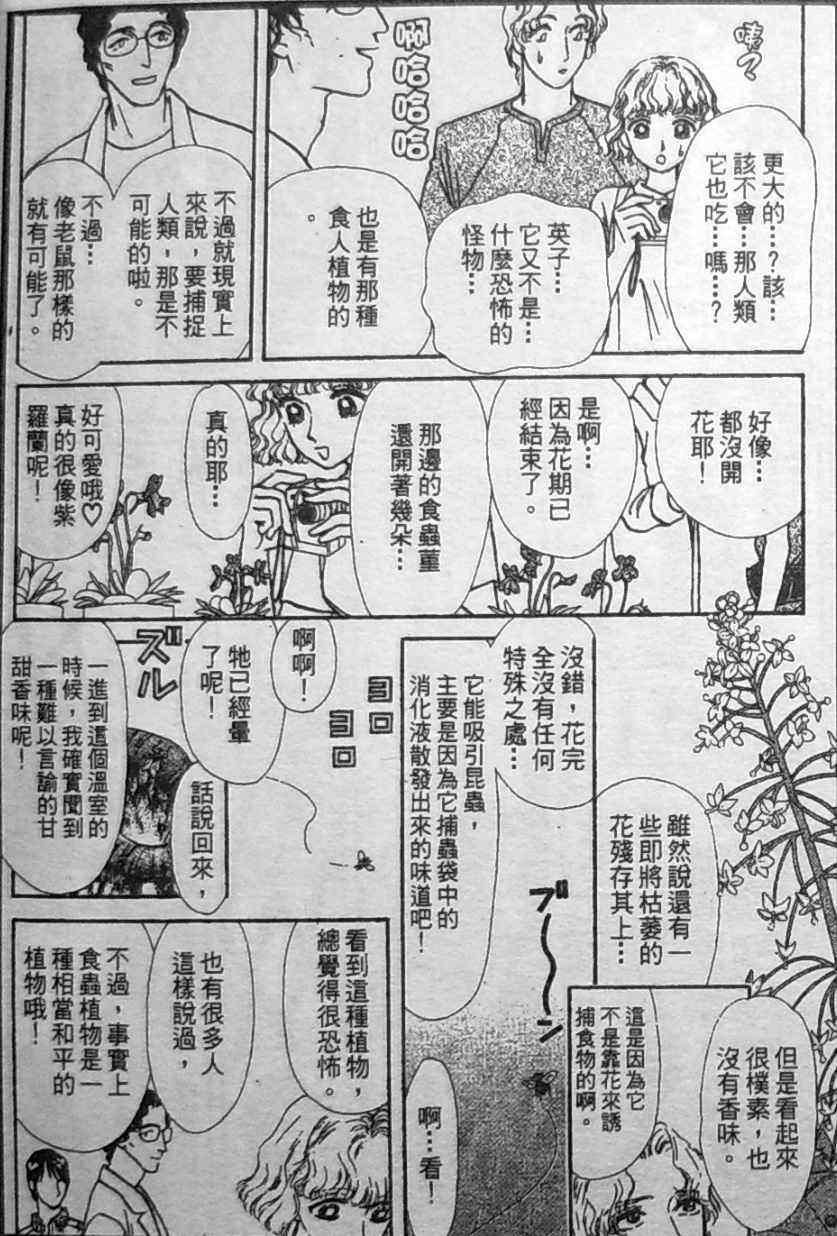 咦？
更大的…？該…
該不會…那人類
它也吃…嗎…？
英子…
它又不是…
什麼恐怖的
怪物…
啊哈哈哈
也是有那種
食人植物的
。
不過就現實上
來說，要捕捉
人類，那是不
可能的啦。
不過…
像老鼠那樣的
就有可能了。
好像…
都沒開
花耶！
是啊…
因為花期已
經結束了。
那邊的食蟲菫
還開著幾朵…
真的耶…
好可愛哦♡
真的很像紫
羅蘭呢！
雖然說還有一
些即將枯萎的
花殘存其上…
但是看起來
很樸素，也
沒有香味。
這是因為它
不是靠花來誘
捕食物的啊。
沒錯，花完
全沒有任何
特殊之處…
它能吸引昆蟲，
主要是因為它捕蟲袋中的
消化液散發出來的味道吧！
ブ〜〜ン
啊…看！
ヨロ
ヨロ
啊啊！
牠已經暈
了呢！
ズル
話說回來，
一進到這個溫室的
時候，我確實聞到
一種難以言諭的甘
甜香味呢！
看到這種植物，
總覺得很恐怖。
也有很多人
這樣說過，
不過，事實上
食蟲植物是一
種相當和平的
植物哦！